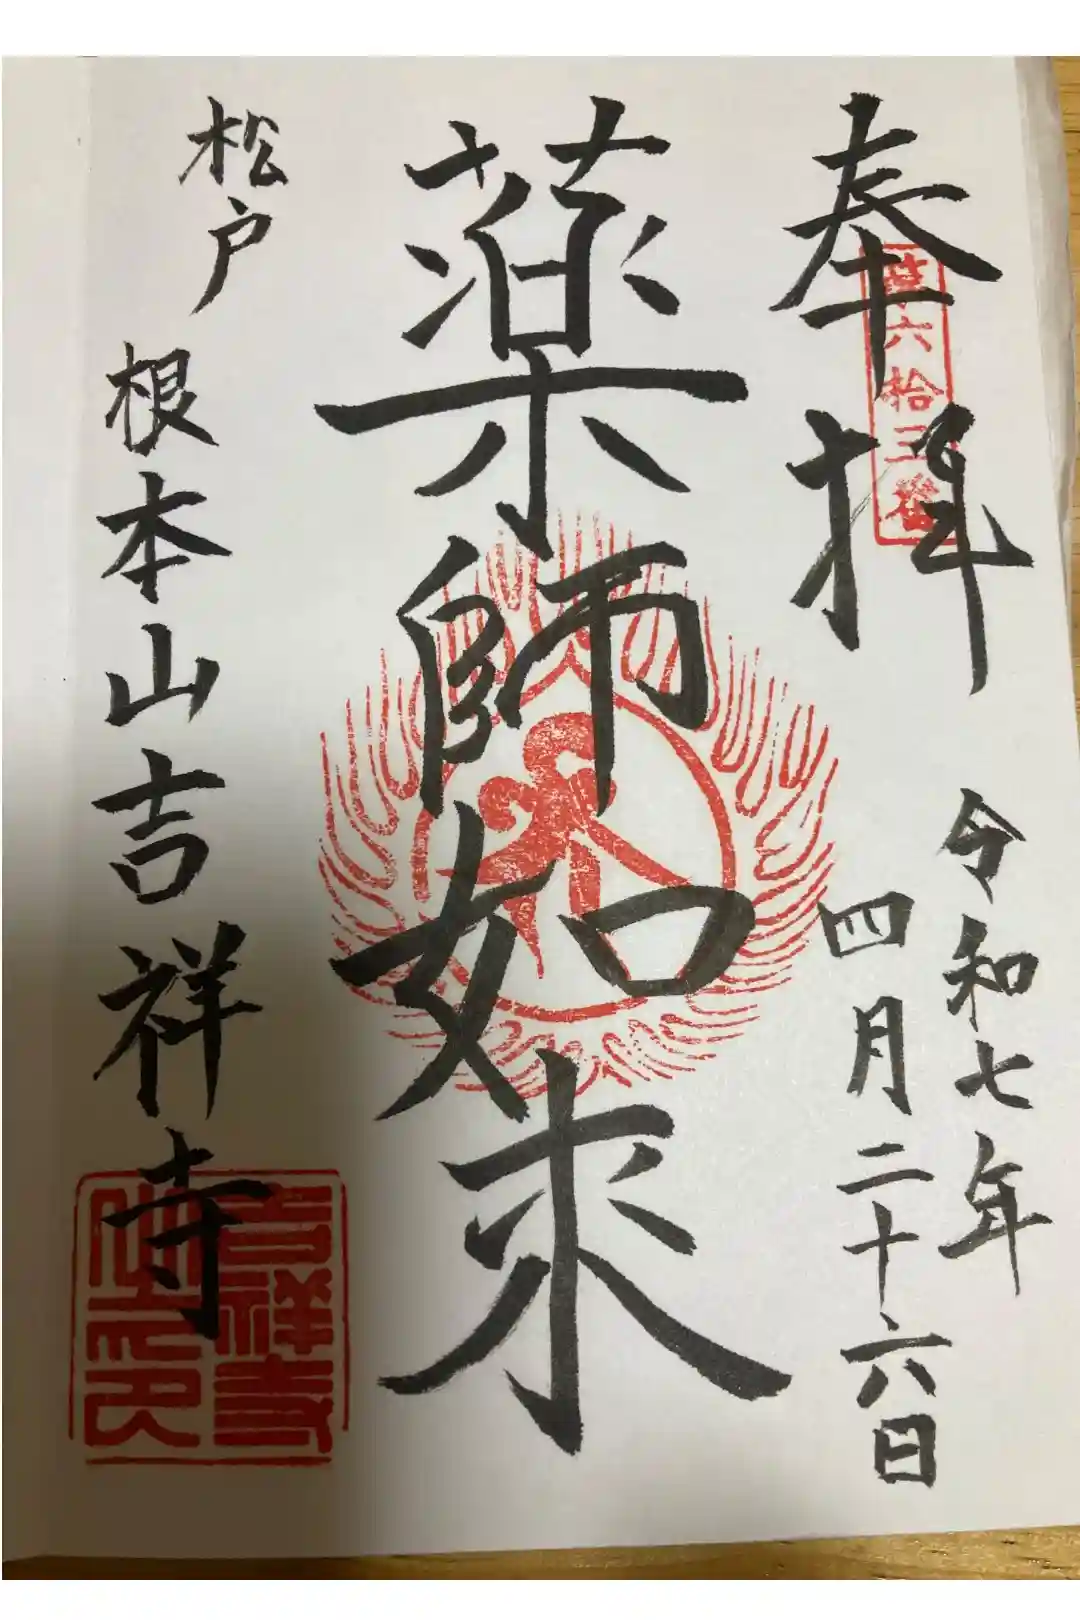 奉拝
第六拾三番
令和七年
四月二十六日
薬師如来
松戸
根本山吉祥寺
吉祥寺